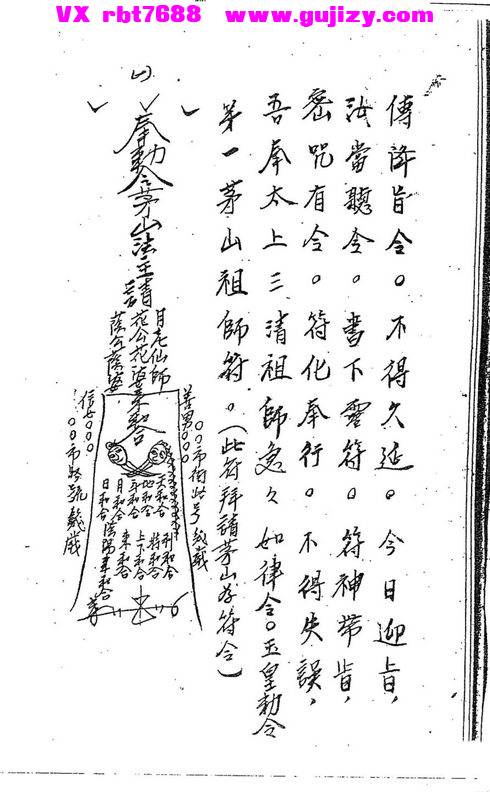 VX rbt7688 www.gujizy.com
傳諱旨令。不得久延。今日迎旨，
汝當聽令。書下靈符。符神帶旨，
密咒有令。符化奉行。不得失誤，
吾奉太上三清祖師急久如律令。玉皇勅令
第一茅山祖師符。（此符拜請茅山名符令）
(一)
奉勅令茅山法主請
月老仙師
花公花婆來勅合
善男○○○
○○市街路号幾歲
信女○○○
○○市路號幾歲
天和合
地和合
年和合
月和合
日和合
時和合
上下和合
來和合
陰陽來和合